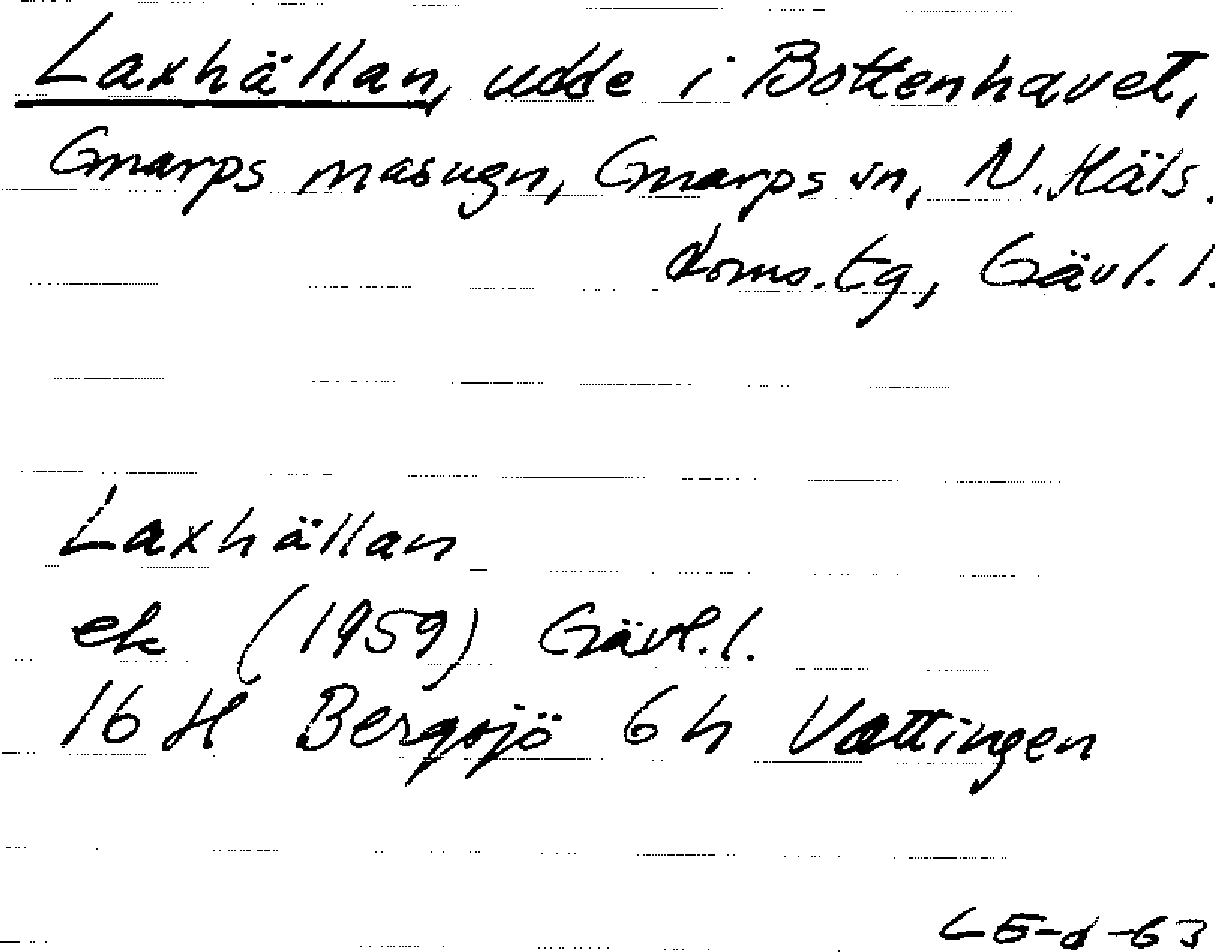 Laxhällan, udde i Bottenhavet,
Gnarps masugn, Gnarps sn, N. Häls.
doms.tg, Gävl. l.
Laxhällan
ek (1959) Gävl. l.
16 H Bergsjö 6 h Vattingen
LE-d-63